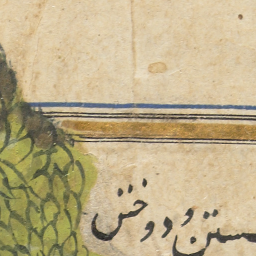 ستن و دوختن